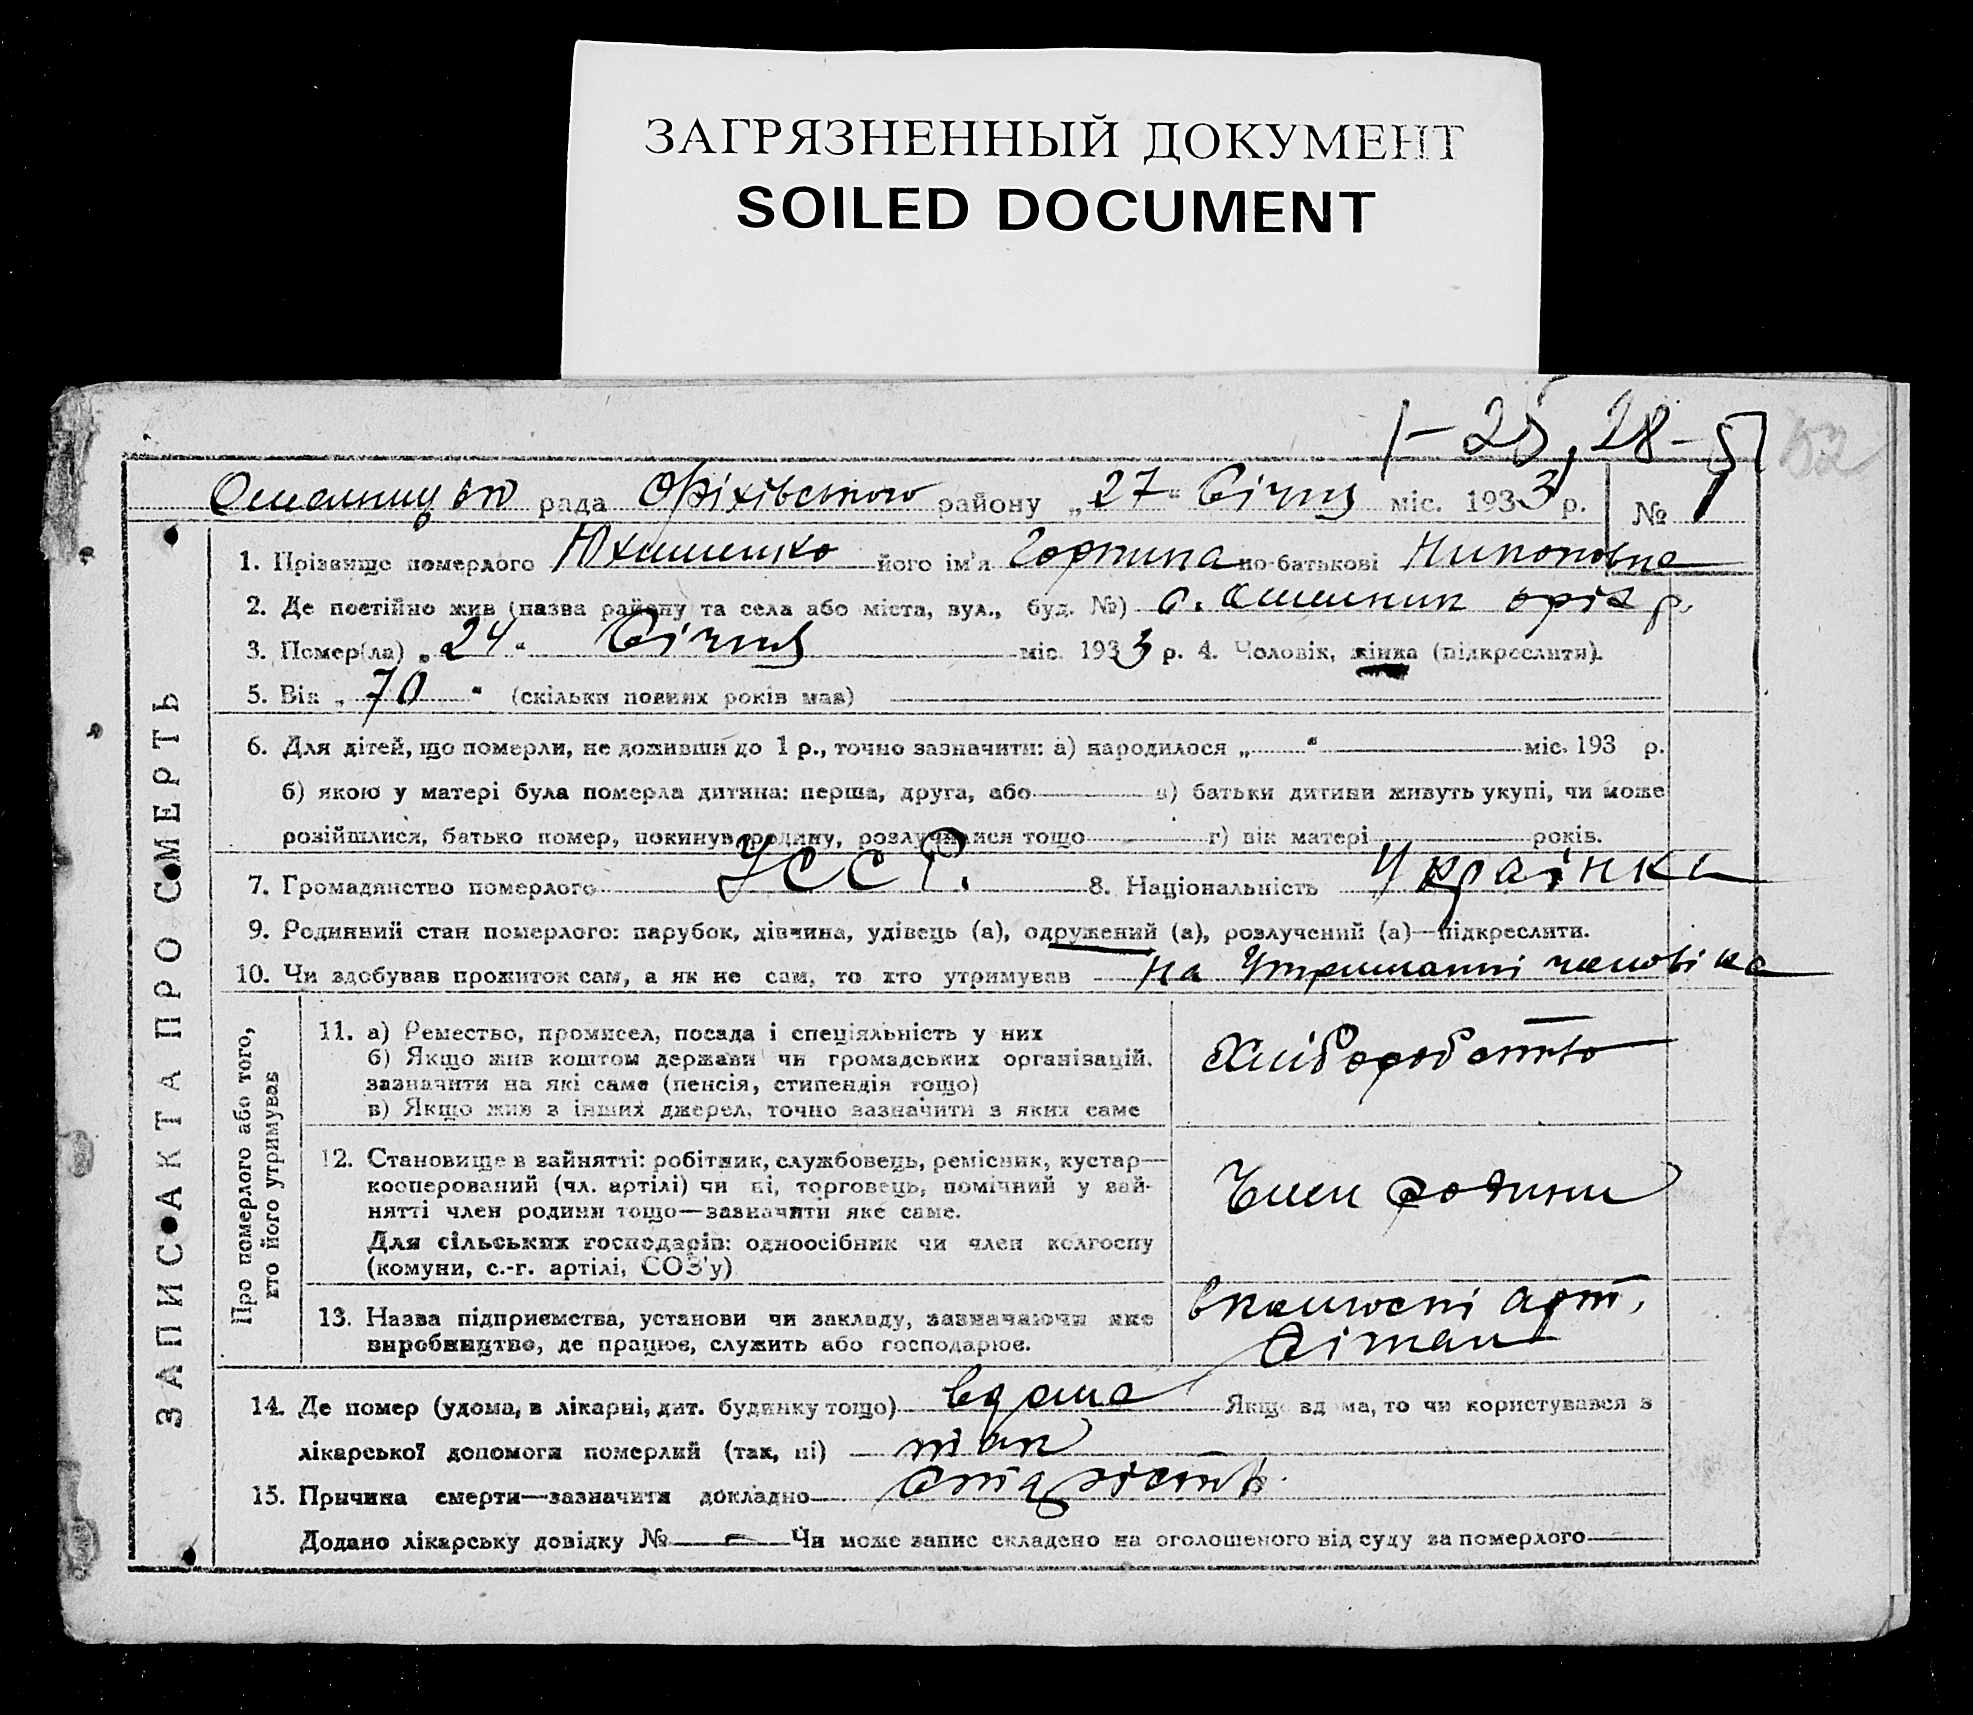 ЗАГРЯЗНЕННЫЙ ДОКУМЕНТ
SOILED DOCUMENT
1–25, 28–51
52
рада Оріхівського району „27“ Січня міс. 1933 р. № 1
ЗАПИС АКТА ПРО СМЕРТЬ
1. Прізвище померлого Юхименко його ім'я Горпина по-батькові Никоновна
2. Де постійно жив (назва району та села або міста, вул., буд. №) с. Омельник оріх р.
3. Помер(ла) „24“ Січня міс. 1933 р. 4. Чоловік, жінка (підкреслити).
5. Вік „70“ (скільки повних років мав)
6. Для дітей, що померли, не доживши до 1 р., точно зазначити: а) народилося „ “ міс. 193 р.
б) якою у матері була померла дитина: перша, друга, або в) батьки дитини живуть укупі, чи може
розійшлися, батько помер, покинув родину, розлучилися тощо г) вік матері років.
7. Громадянство померлого УССР. 8. Національність Українка
9. Родинний стан померлого: парубок, дівчина, удівець (а), одружений (а), розлучений (а)—підкреслити.
10. Чи здобував прожиток сам, а як не сам, то хто утримував на Утриманні чоловіка
Про померлого або того,
хто його утримував
11. а) Ремество, промисел, посада і спеціяльність у них
б) Якщо жив коштом держави чи громадських організацій,
зазначити на які саме (пенсія, стипендія тощо)
в) Якщо жив з інших джерел, точно зазначити з яких саме
Хліборобство
12. Становище в зайнятті: робітник, службовець, ремісник, кустар—
кооперований (чл. артілі) чи ні, торговець, помічний у зай-
нятті член родини тощо—зазначити яке саме.
Для сільських господарів: одноосібник чи член колгоспу
(комуни, с.-г. артілі, СОЗ'у)
Член родини
13. Назва підприємства, установи чи закладу, зазначаючи яке
виробництво, де працює, служить або господарює.
в колгоспі арт.
14. Де помер (удома, в лікарні, дит. будинку тощо) вдома Якщо вдома, то чи користувався з
лікарської допомоги померлий (так, ні) так
15. Причина смерти—зазначити докладно старість.
Додано лікарську довідку № – Чи може запис складено на оголошеного від суду за померлого